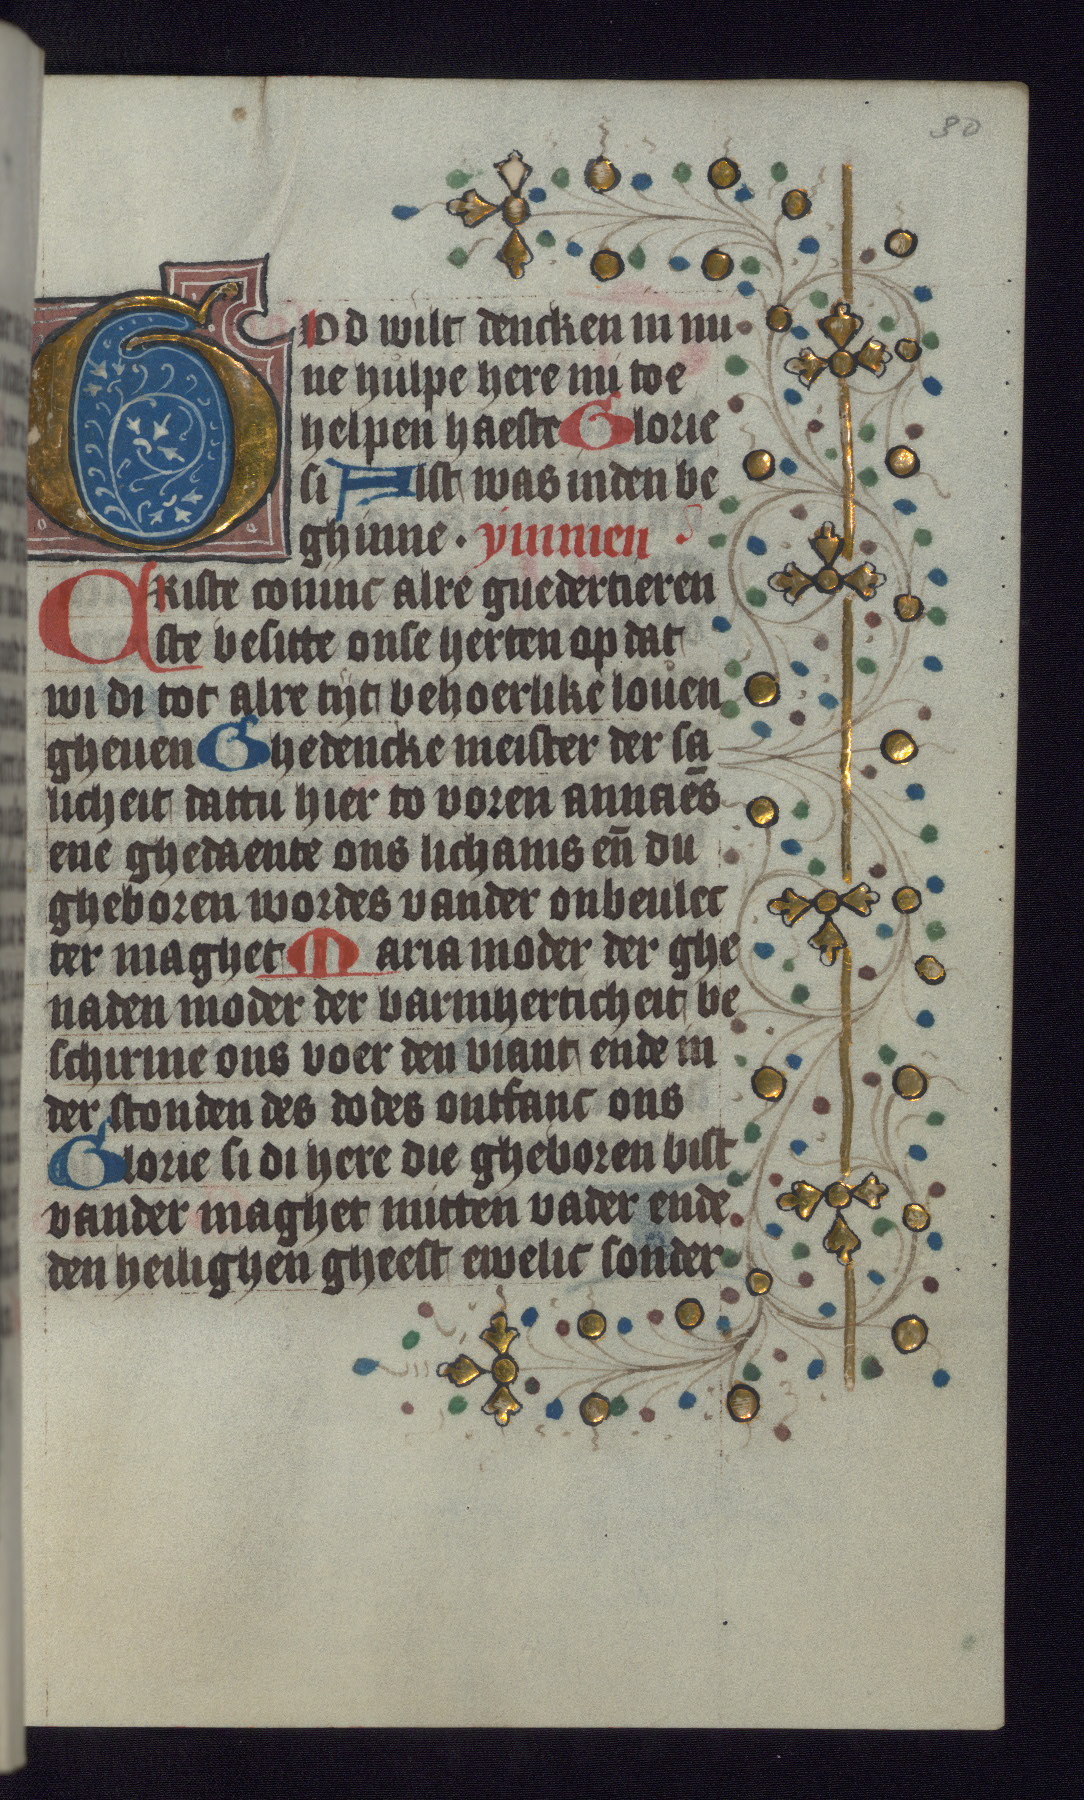 30
God wilt dencken in mi
ne hulpe here mi toe
helpen haeste Glorie
si Alst was inden be
ghinne · ymmen
Criste coninc alre guedertieren
ste besitte onse herten op dat
wi di tot alre tijt behoerlike louen
gheuen Ghedencke meister der sa
licheit dattu hier to voren annaēs
ene ghedaente ons lichams eñ du
gheboren wordes vander onbeulec
ter maghet Maria moder der ghe
naden moder der barmherticheit be
schirme ons voer den viant ende in
der stonden des dodes ontfanc ons
Glorie si di here die gheboren bist
vander maghet mitten vader ende
den heilighen gheest ewelic sonder